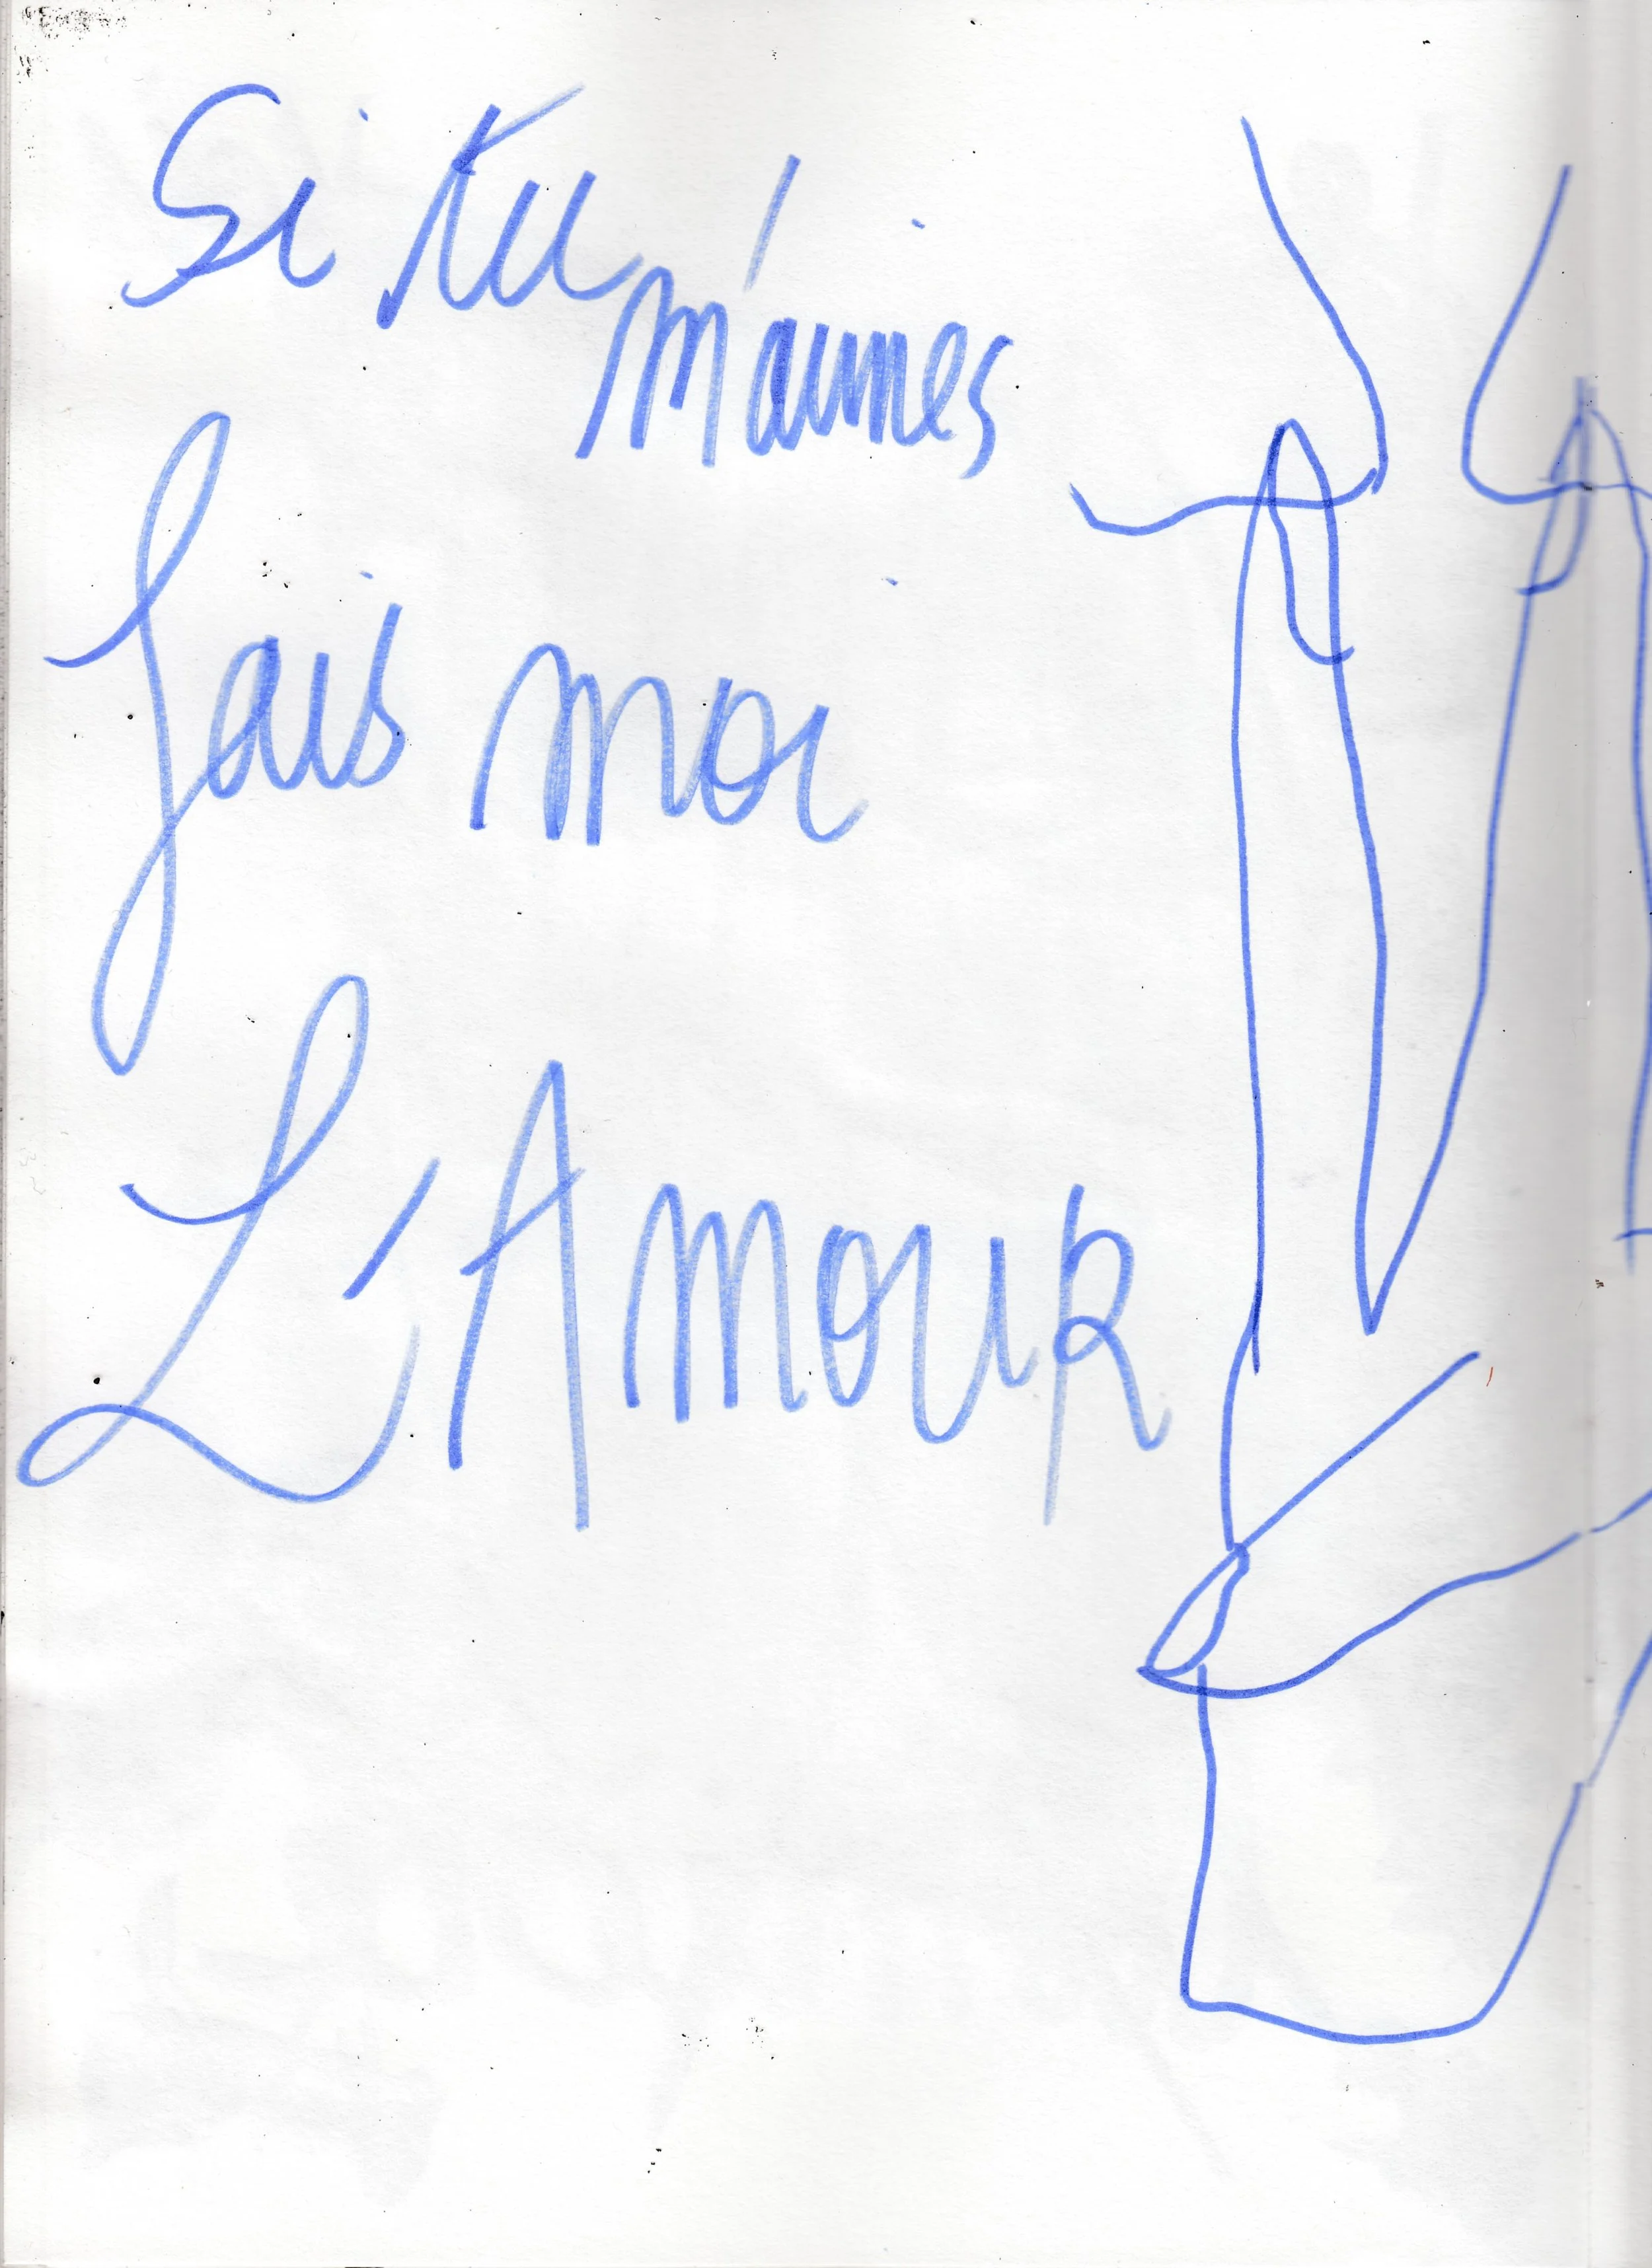 Si tu
m'aimes
fais moi
L'AmouR